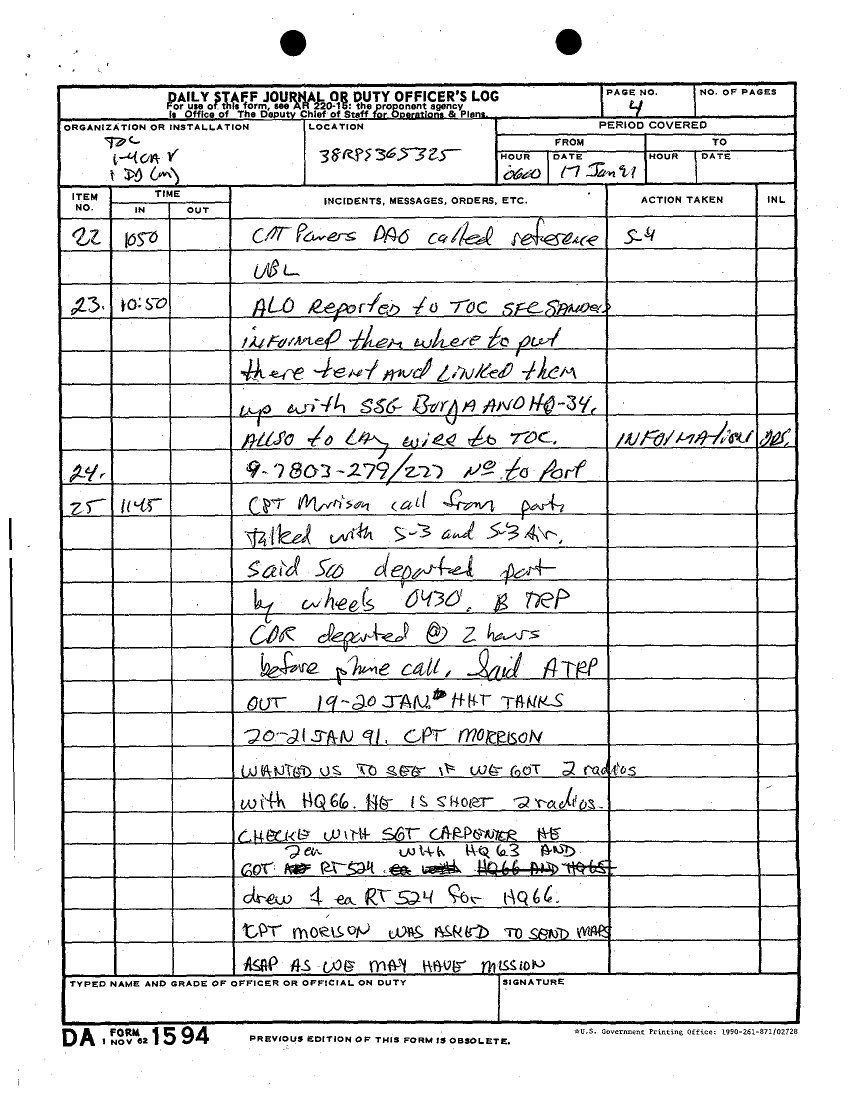 DAILY STAFF JOURNAL OR DUTY OFFICER'S LOG
For use of this form, see AR 220-15; the proponent agency
is Office of The Deputy Chief of Staff for Operations & Plans.
PAGE NO.
4
NO. OF PAGES
ORGANIZATION OR INSTALLATION
TOC
1-4 CAV
1 ID (m)
LOCATION
38RPS365325
PERIOD COVERED
FROM
TO
HOUR
0600
DATE
17 Jan 91
HOUR
DATE
ITEM NO.
TIME
IN
OUT
INCIDENTS, MESSAGES, ORDERS, ETC.
ACTION TAKEN
INL
22 1050 CPT Powers DAO called reference S-4
UBL
23. 10:50 ALO Reported to TOC SFC SANDERS
INFORMED them where to put
there tent AND LINKED them
up with SSG BorjA AND HQ-34.
ALLSO to LAy wire to TOC. INFORMAtioN
24. 9-7803-279/227 No to Port
25 1145 CPT Morrison call from port,
talked with S-3 and S-3 Air.
Said SCO departed port
by wheels 0430. B TRP
CDR departed @ 2 hours
before phone call. Said A TRP
OUT 19-20 JAN. HHT TANKS
20-21 JAN 91. CPT MORRISON
WANTED US TO SEE IF WE GOT 2 radios
with HQ66. HE IS SHORT 2 radios.
CHECKE WITH SGT CARPENTER HE
2 ea with HQ 63 AND
GOT RT 524 ea with HQ66 AND HQ65
drew 1 ea RT 524 for HQ66.
CPT MORISON WAS ASKED TO SEND MAPS
ASAP AS WE MAY HAVE MISSION
TYPED NAME AND GRADE OF OFFICER OR OFFICIAL ON DUTY
SIGNATURE
DA FORM 1 NOV 62 1594
PREVIOUS EDITION OF THIS FORM IS OBSOLETE.
*U.S. Government Printing Office: 1990-261-871/02728